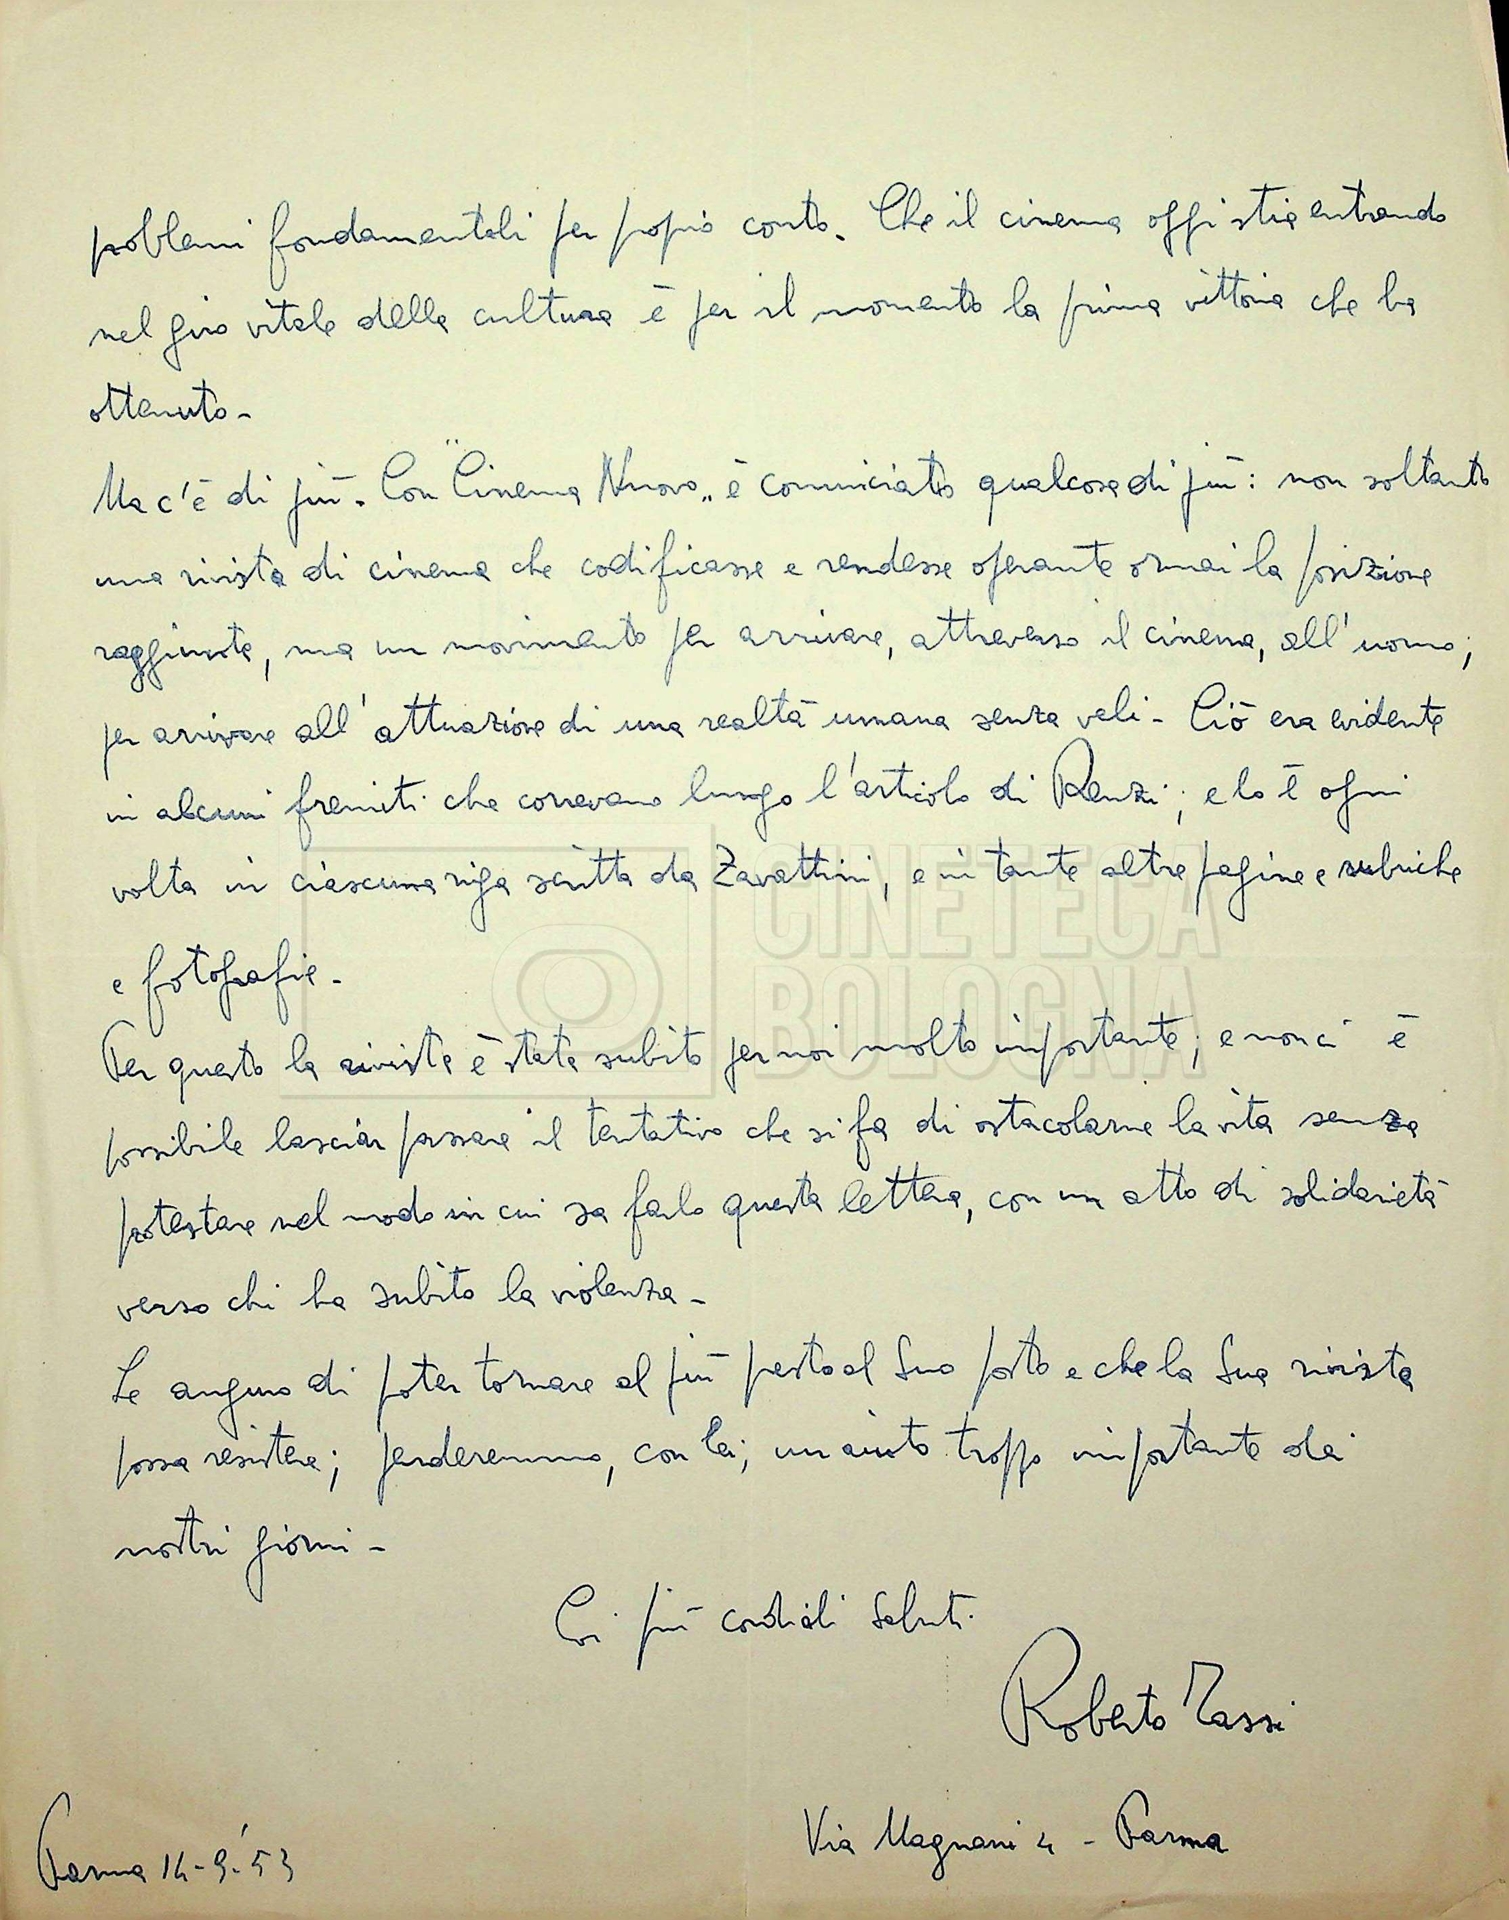 problemi fondamentali per proprio conto. Che il cinema oggi stia entrando
nel giro vitale della cultura è per il momento la prima vittoria che ha
ottenuto -
Ma c'è di più. Con "Cinema Nuovo„ è cominciato qualcosa di più: non soltanto
una rivista di cinema che codificasse e rendesse operante ormai la posizione
raggiunta, ma un movimento per arrivare, attraverso il cinema, all'uomo;
per arrivare all'attuazione di una realtà umana senza veli - Ciò era evidente
in alcuni fremiti che correvano lungo l'articolo di Renzi; e lo è ogni
volta in ciascuna riga scritta da Zavattini, e in tante altre pagine e rubriche
e fotografie -
Per questo la rivista è stata subito per noi molto importante; e non ci è
possibile lasciar passare il tentativo che si fa di ostacolarne la vita senza
protestare nel modo in cui sa farlo questa lettera, con un atto di solidarietà
verso chi ha subito la violenza -
Le auguro di poter tornare al più presto al Suo posto e che la Sua rivista
possa resistere; perderemmo, con lei, un aiuto troppo importante dei
nostri giorni -
Coi più cordiali saluti
Roberto Tassi
Via Magnani 4 - Parma
Parma 14-9-'53
CINETECA
BOLOGNA